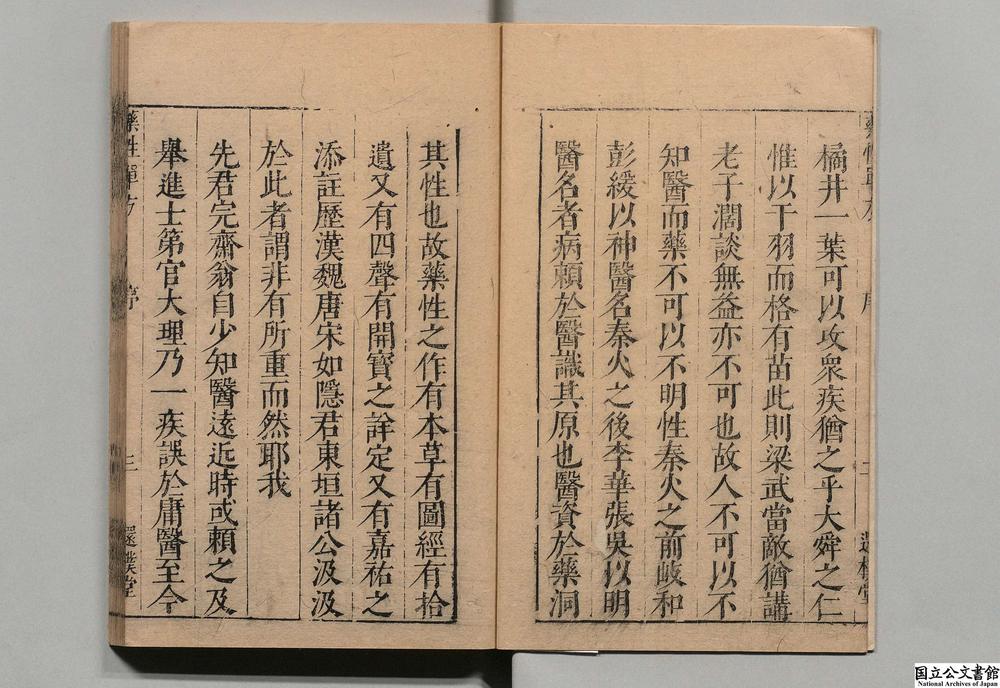 橘井一葉可以攻衆疾猶之乎大舜之仁
惟以干羽而格有苗此則梁武當敵猶講
老子濶談無益亦不可也故人不可以不
知醫而藥不可以不明性秦火之前岐和
彭緩以神醫名秦火之後李華張吳以明
醫名者病頼於醫識其原也醫資於藥洞
其性也故藥性之作有本草有圖經有拾
遺又有四聲有開寳之詳定又有嘉祐之
添註歷漢魏唐宋如隱君東垣諸公汲汲
於此者謂非有所重而然耶我
先君完齋翁自少知醫遠近時或頼之及
舉進士第官大理乃一疾誤於庸醫至今
藥性單方
序
三
還樸堂
国立公文書館
National Archives of Japan